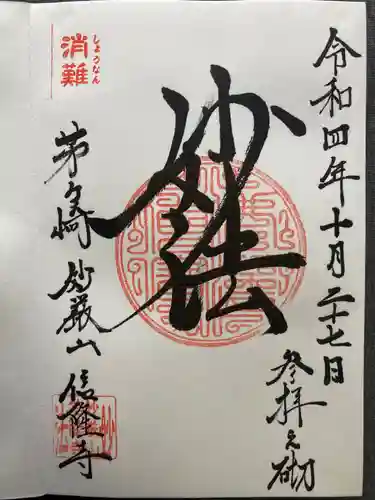 令和四年十月二十七日
参拝之砌
妙法
しょうなん
消難
茅ヶ崎 妙厳山 信隆寺